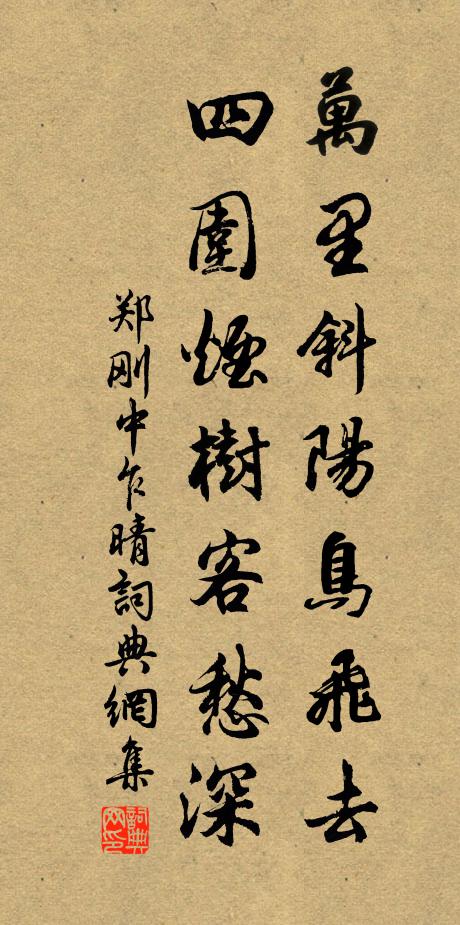 萬里斜陽鳥飛去
四圍煙樹客愁深
郑刚中乍晴詞典網集
詞典网印